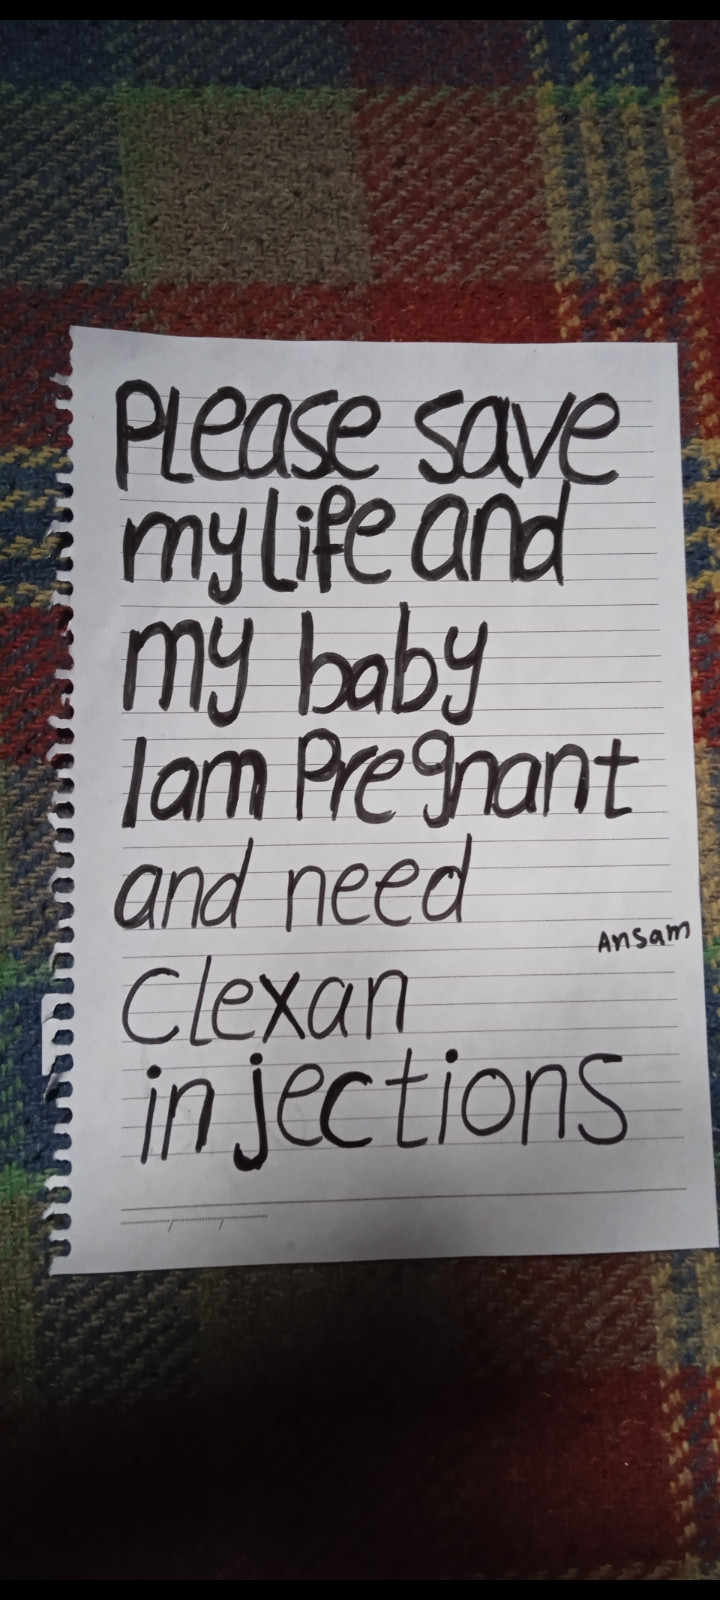 Please save
my life and
my baby
I am Pregnant
and need
Ansam
Clexan
injections